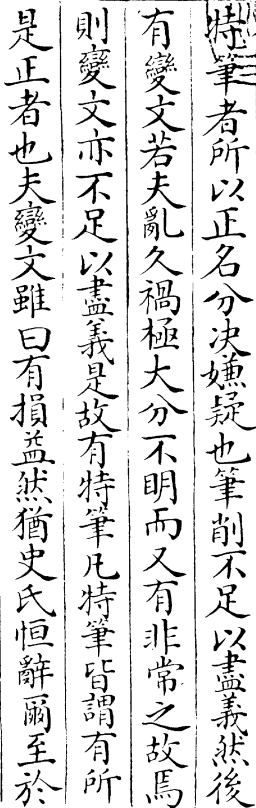 特筆者所以正名分決嫌疑也筆削不足以盡義然後
有變文若夫亂久禍極大分不明而又有非常之故焉
則變文亦不足以盡義是故有特筆凡特筆皆謂有所
是正者也夫變文雖曰有損益然猶史氏恒辭爾至於